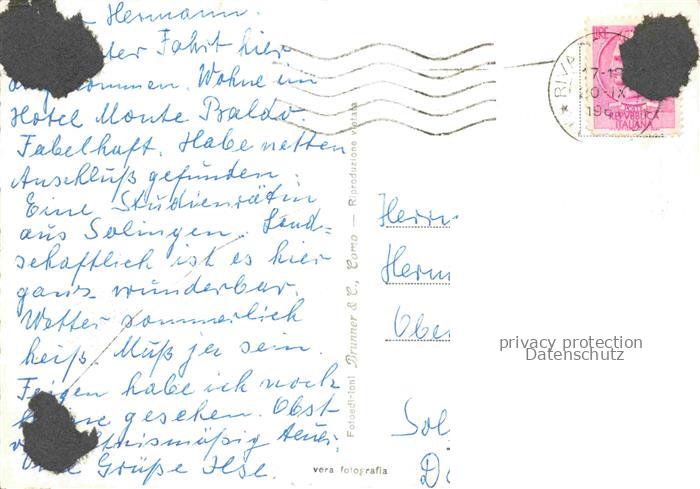 Hermann.
Fahrt hier
angekommen. Wohne im
Hotel Monte Baldo.
Fabelhaft. Habe netten
Anschluß gefunden.
Eine Studienrätin
aus Solingen. Land=
schaftlich ist es hier
ganz wunderbar.
Wetter sommerlich
heiß. Muß ja sein.
Feigen habe ich noch
gesehen. Obst
teuer.
Grüße Ilse.
Fotoedizioni Brunner & C., Como — Riproduzione vietata
vera fotografia
RIVA
17-18
0-IX
19
LIRE
POSTE
REPVBBLICA
ITALIANA
Herrn
Herm
Ober
Sol
privacy protection
Datenschutz